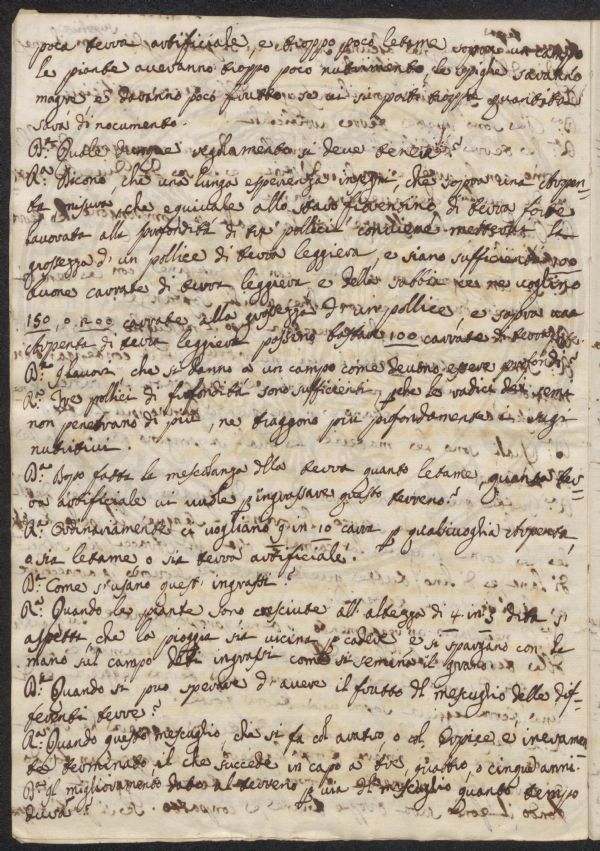 poca terra artificiale, e troppo poco letame sopra un campo
le piante averanno troppo poco nutrimento, le spighe saranno
magre e daranno poco frutto, se vi si porta troppa quantità
sarà di nocumento.
D.ª Quale dunque reglamento si deve tenere?
R.ª Dicono, che una lunga esperienza insegni, che sopra una
misura che equivale allo staro fiorentino di terra forte
lavorata alla profondità di tre pollici conviene metterci la
grossezza di un pollice di terra leggiera, e siano sufficienti 100
buone carrate di terra leggiera e della sabbia ce ne vogliono
150, o 200 carrate alla grossezza d'un pollice, e sopra una
di terra leggiera possino bastare 100 carrate di terra forte
D.ª I lavori che si danno a un campo come devono essere profondi?
R.ª Tre pollici di profondità sono sufficienti, pche le radici dei semi
non penetrano di più, ne traggono più profondamente i sugi
nutritivi.
D.ª Dopo fatta la mescolanza dlla terra quanto letame, quanta ter-
ra artificiale vi vuole p ingrassare questo terreno?
R.ª Ordinariamente ci vogliano 9 in 10 carra p qualsivoglia
o sia letame o sia terra artificiale.
D.ª Come s'usano questi ingrassi?
R.ª Quando le piante sono cresciute all'altezza di 4 in 5 dita si
aspetta che la pioggia sia vicina p cadere e si spargano con le
mano sul campo dtti ingrassi come si semina il grano.
D.ª Quando si puo sperare d'avere il frutto dl mescuglio delle dif-
ferenti terre?
R.ª Quando questo mescuglio, che si fa col aratro o col Erpice e interamen
te terminato il che succede in capo a tre, quattro, o cinque anni.
D.ª Il miglioramento dato al terreno p via dl mescuglio quanto tempo
dura?